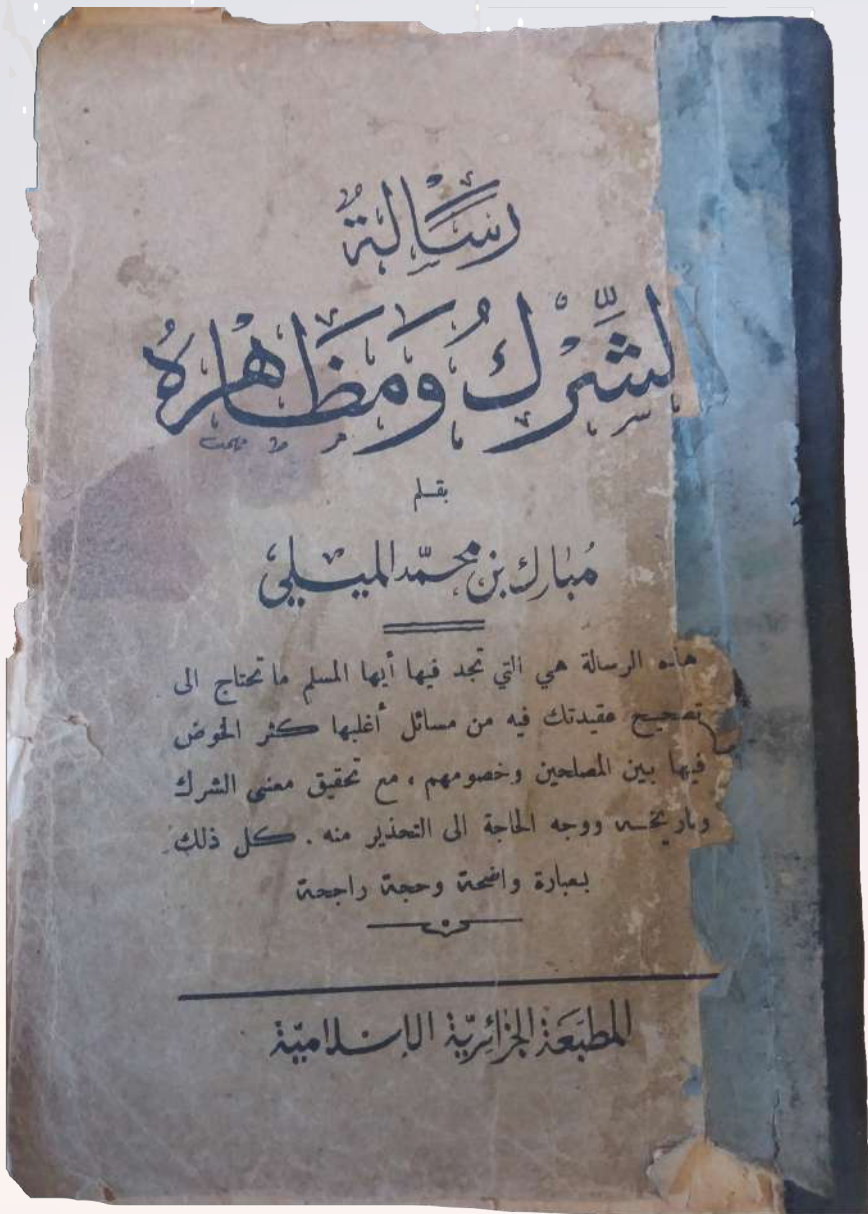 رسالة
الشرك ومظاهره
بقلم
مبارك بن محمد الميلي
هذه الرسالة هي التي تجد فيها أيها المسلم ما تحتاج الى
تصحيح عقيدتك فيه من مسائل أغلبها كثر الخوض
فيها بين المصلحين وخصومهم ، مع تحقيق معنى الشرك
وتاريخه ووجه الحاجة الى التحذير منه . كل ذلك
بعبارة واضحة وحجة راجحة
المطبعة الجزائرية الإسلامية